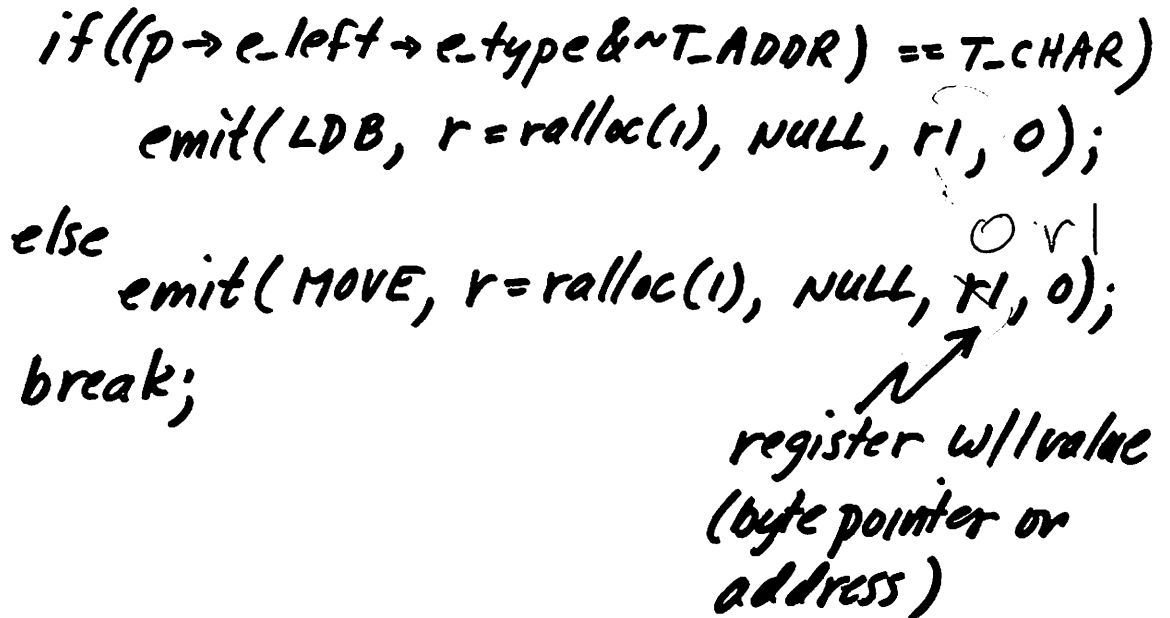 if((p→e_left→e_type&~T_ADDR) == T_CHAR)
emit(LDB, r=ralloc(1), NULL, r1, 0);
else
0 r1
emit(MOVE, r=ralloc(1), NULL, r1, 0);
break;
register w/lvalue
(byte pointer or
address)